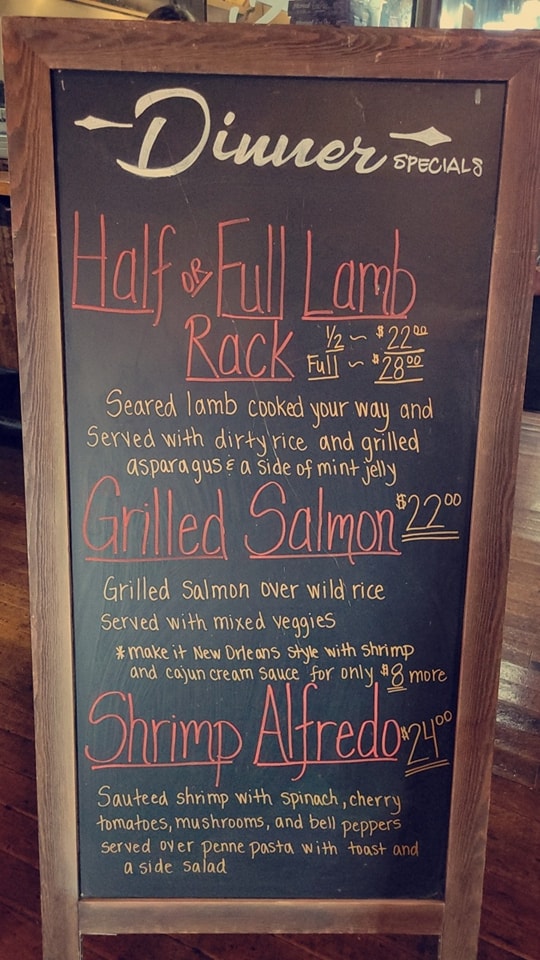 Dinner SPECIALS
Half OR Full Lamb
Rack
1/2 ~ $22.00
Full ~ $28.00
Seared lamb cooked your way and
Served with dirty rice and grilled
asparagus & a side of mint jelly
Grilled Salmon $22.00
Grilled Salmon over wild rice
Served with mixed veggies
*make it New Orleans style with shrimp
and cajun cream sauce for only $8 more
Shrimp Alfredo $24.00
Sauteed shrimp with spinach, cherry
tomatoes, mushrooms, and bell peppers
served over penne pasta with toast and
a side salad